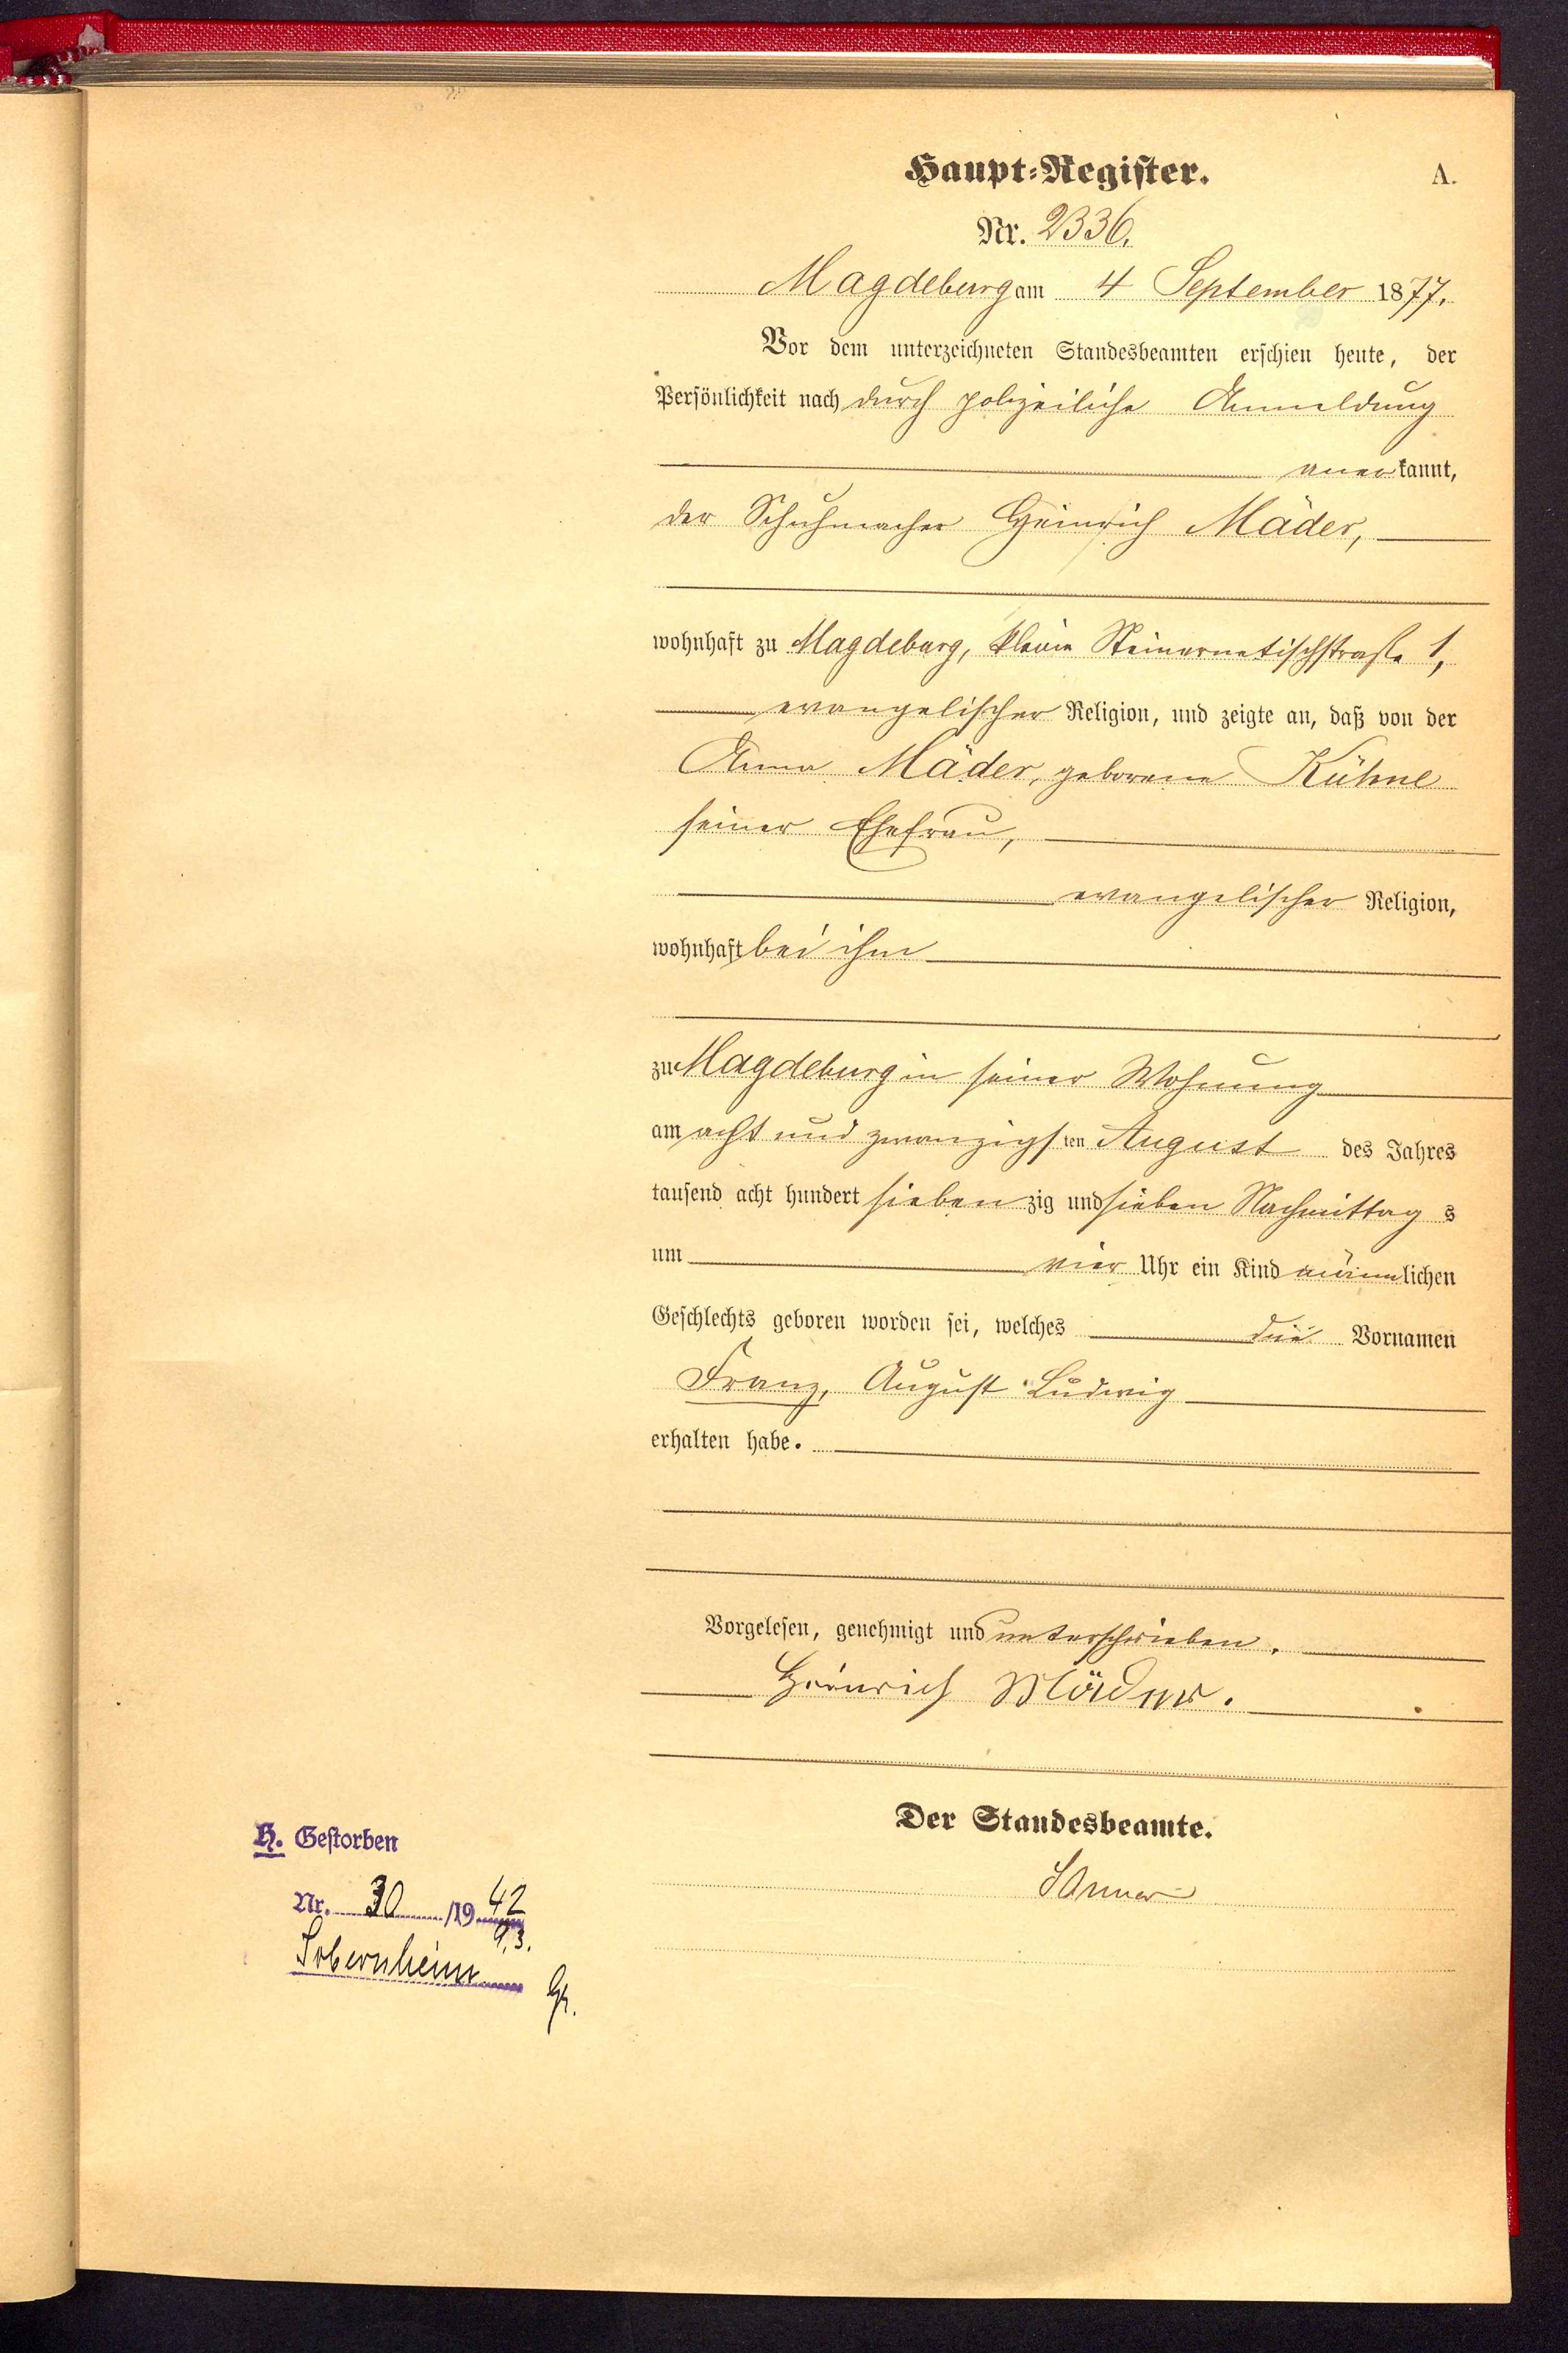 Haupt-Register.
A.
Nr. 2336.
Magdeburg am 4 September 1877.
Vor dem unterzeichneten Standesbeamten erschien heute, der
Persönlichkeit nach durch polizeiliche Anmeldung
anerkannt,
der Schuhmacher Heinrich Mäder,
wohnhaft zu Magdeburg, kleine Steinernetischstraße 1,
evangelischer Religion, und zeigte an, daß von der
Anna Mäder, geborene Kühne
seiner Ehefrau,
evangelischer Religion,
wohnhaft bei ihm
zu Magdeburg in seiner Wohnung
am acht und zwanzigsten August des Jahres
tausend acht hundert siebenzig und sieben Nachmittags
um vier Uhr ein Kind männlichen
Geschlechts geboren worden sei, welches die Vornamen
Franz, August Ludwig
erhalten habe.
Vorgelesen, genehmigt und unterschrieben.
Heinrich Mäder.
Der Standesbeamte.
H. Gestorben
Nr. 30 /1942
9.3.
Sobernheim